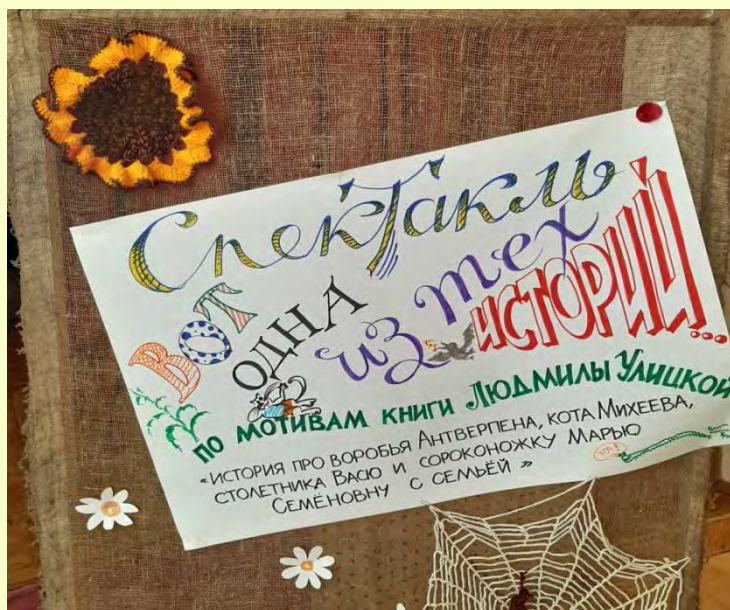 Спектакль
ВОТ ОДНА из тех ИСТОРИЙ...
ПО МОТИВАМ КНИГИ ЛЮДМИЛЫ УЛИЦКОЙ
«ИСТОРИЯ ПРО ВОРОБЬЯ АНТВЕРПЕНА, КОТА МИХЕЕВА,
СТОЛЕТНИКА ВАСЮ И СОРОКОНОЖКУ МАРЬЮ
СЕМЁНОВНУ С СЕМЬЁЙ»